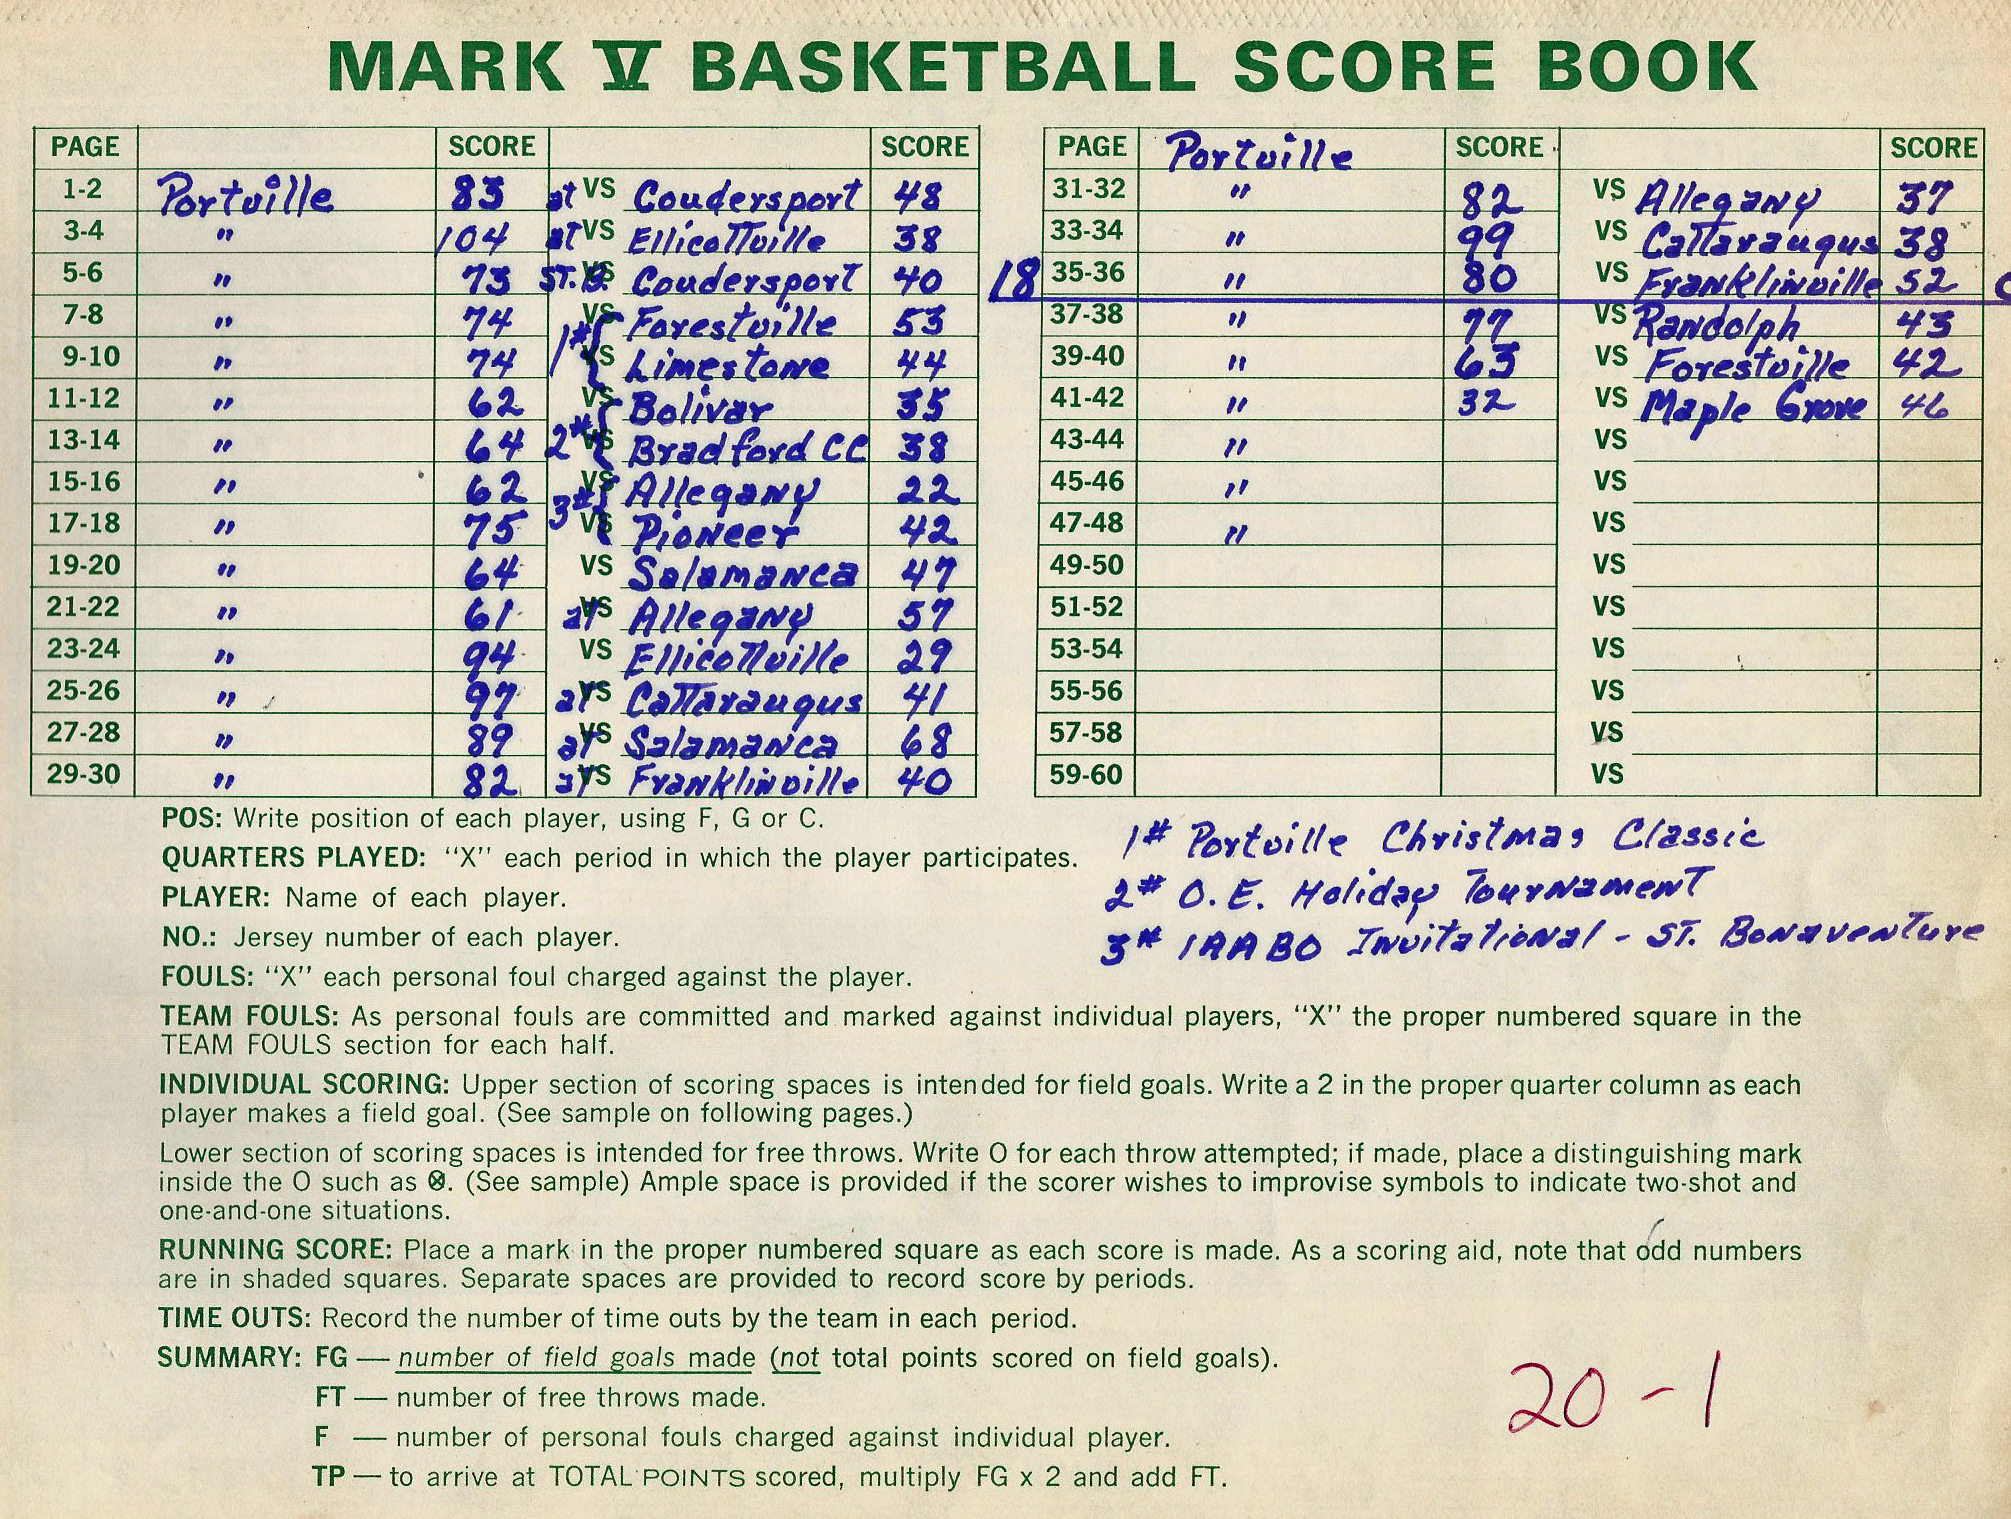 MARK V BASKETBALL SCORE BOOK
PAGE SCORE SCORE
1-2 Portville 83 at VS Coudersport 48
3-4 " 104 at VS Ellicottville 38
5-6 " 73 ST. B. VS Coudersport 40
7-8 " 74 1# VS Forestville 53
9-10 " 74 VS Limestone 44
11-12 " 62 VS Bolivar 35
13-14 " 64 2# VS Bradford CC 38
15-16 " 62 VS Allegany 22
17-18 " 75 3# VS Pioneer 42
19-20 " 64 VS Salamanca 47
21-22 " 61 at VS Allegany 57
23-24 " 94 VS Ellicottville 29
25-26 " 97 at VS Cattaraugus 41
27-28 " 89 at VS Salamanca 68
29-30 " 82 at VS Franklinville 40
PAGE Portville SCORE SCORE
31-32 " 82 VS Allegany 37
33-34 " 99 VS Cattaraugus 38
18 35-36 " 80 VS Franklinville 52
37-38 " 77 VS Randolph 43
39-40 " 63 VS Forestville 42
41-42 " 32 VS Maple Grove 46
43-44 " VS
45-46 " VS
47-48 " VS
49-50 VS
51-52 VS
53-54 VS
55-56 VS
57-58 VS
59-60 VS
1# Portville Christmas Classic
2# O.E. Holiday Tournament
3# IAABO Invitational - ST. Bonaventure
POS: Write position of each player, using F, G or C.
QUARTERS PLAYED: "X" each period in which the player participates.
PLAYER: Name of each player.
NO.: Jersey number of each player.
FOULS: "X" each personal foul charged against the player.
TEAM FOULS: As personal fouls are committed and marked against individual players, "X" the proper numbered square in the
TEAM FOULS section for each half.
INDIVIDUAL SCORING: Upper section of scoring spaces is intended for field goals. Write a 2 in the proper quarter column as each
player makes a field goal. (See sample on following pages.)
Lower section of scoring spaces is intended for free throws. Write O for each throw attempted; if made, place a distinguishing mark
inside the O such as ⊗. (See sample) Ample space is provided if the scorer wishes to improvise symbols to indicate two-shot and
one-and-one situations.
RUNNING SCORE: Place a mark in the proper numbered square as each score is made. As a scoring aid, note that odd numbers
are in shaded squares. Separate spaces are provided to record score by periods.
TIME OUTS: Record the number of time outs by the team in each period.
SUMMARY: FG — number of field goals made (not total points scored on field goals).
FT — number of free throws made.
F — number of personal fouls charged against individual player.
TP — to arrive at TOTAL POINTS scored, multiply FG x 2 and add FT.
20 - 1